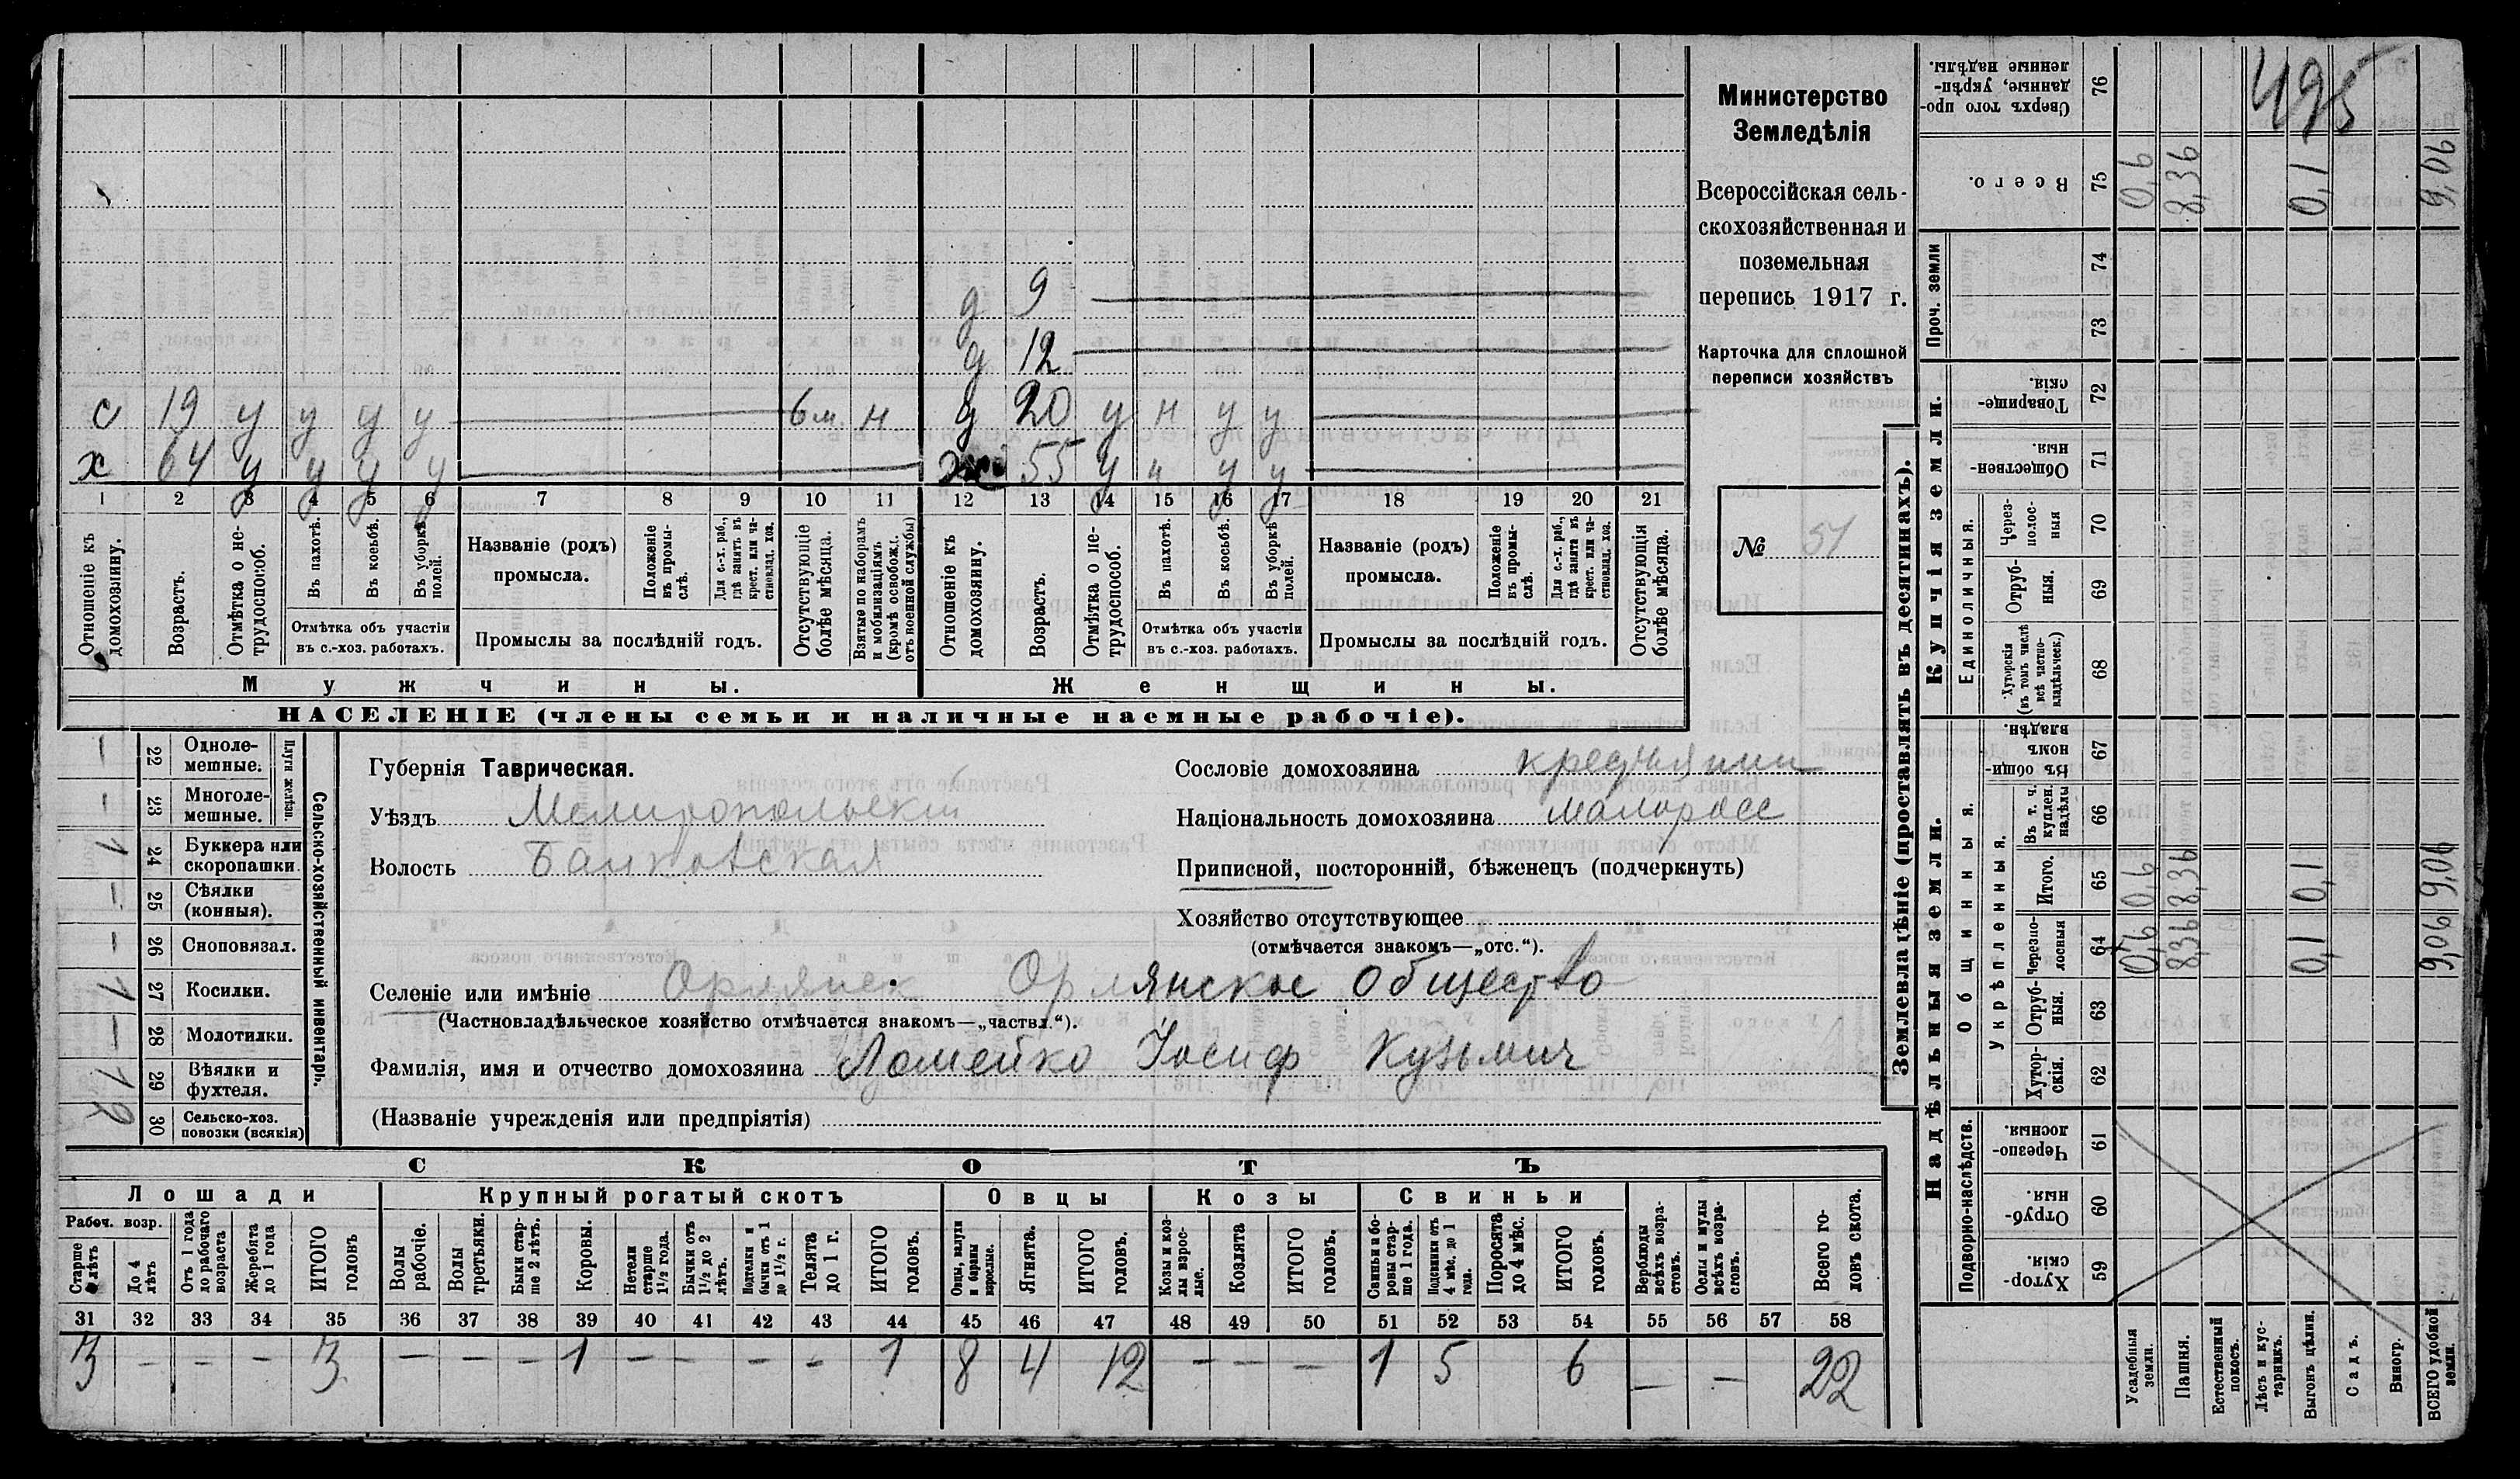 Министерство
Земледѣлія
Всероссійская сель-
скохозяйственная и
поземельная
перепись 1917 г.
Карточка для сплошной
переписи хозяйствъ
№ 51
495
д 9
д 12
с 19 у у у у 6 м. н д 20 у н у у
х 64 у у у у ж 55 у н у у
1 2 3 4 5 6 7 8 9 10 11 12 13 14 15 16 17 18 19 20 21
Отношеніе къ домохозяину.
Возрастъ.
Отмѣтка о не-трудоспособ.
Въ пахотѣ.
Въ косьбѣ.
Въ уборкѣ полей.
Отмѣтка объ участіи
въ с.-хоз. работахъ.
Названіе (родъ)
промысла.
Положеніе въ промы-слѣ.
Для с.-х. раб., гдѣ занятъ въ крест. или ча-стновлад. хоз.
Промыслы за послѣдній годъ.
Отсутствующіе болѣе мѣсяца.
Взятые по наборамъ и мобилизаціямъ (кромѣ освобожд. отъ военной службы)
Отношеніе къ домохозяину.
Возрастъ.
Отмѣтка о не-трудоспособ.
Въ пахотѣ.
Въ косьбѣ.
Въ уборкѣ полей.
Отмѣтка объ участіи
въ с.-хоз. работахъ.
Названіе (родъ)
промысла.
Положеніе въ промы-слѣ.
Для с.-х. раб., гдѣ занята въ крест. или ча-стновлад. хоз.
Промыслы за послѣдній годъ.
Отсутствующія болѣе мѣсяца.
Мужчины.
Женщины.
НАСЕЛЕНІЕ (члены семьи и наличные наемные рабочіе).
Сельско-хозяйственный инвентарь.
Плуги желѣзн.
– 22 Одноле-мешные.
– 23 Многоле-мешные.
1 24 Буккера или скоропашки.
– 25 Сѣялки (конныя).
– 26 Сноповязал.
1 27 Косилки.
– 28 Молотилки.
1 29 Вѣялки и фухтеля.
2 30 Сельско-хоз. повозки (всякія)
Губернія Таврическая.
Уѣздъ Мелитопольскій
Волость Балковская
Сословіе домохозяина крестьянин
Національность домохозяина малоросс
Приписной, посторонній, бѣженецъ (подчеркнуть)
Хозяйство отсутствующее
(отмѣчается знакомъ—„отс.“).
Селеніе или имѣніе Орлянск Орлянское общество
(Частновладѣльческое хозяйство отмѣчается знакомъ—„частвл.“).
Фамилія, имя и отчество домохозяина Ломейко Іосиф Кузьмич
(Названіе учрежденія или предпріятія)
СКОТЪ
Лошади
Крупный рогатый скотъ
Овцы
Козы
Свиньи
Рабоч. возр.
Старше 4 лѣтъ
До 4 лѣтъ
Отъ 1 года до рабочаго возраста
Жеребята до 1 года
ИТОГО головъ
Волы рабочіе.
Волы третьяки.
Быки стар-ше 2 лѣтъ.
Коровы.
Нетели старше 1½ года.
Бычки отъ 1½ до 2 лѣтъ.
Подтелки и бычки отъ 1 до 1½ г.
Телята до 1 г.
ИТОГО головъ.
Овцы, валухи и бараны взрослые.
Ягнята.
ИТОГО головъ.
Козы и коз-лы взрос-лые.
Козлята
ИТОГО головъ.
Свиньи и бо-ровы стар-ше 1 года.
Подсвинки отъ 4 мѣс. до 1 года.
Поросята до 4 мѣс.
ИТОГО головъ.
Верблюды всѣхъ возра-стовъ.
Ослы и мулы всѣхъ возра-стовъ.
Всего го-ловъ скота.
31 32 33 34 35 36 37 38 39 40 41 42 43 44 45 46 47 48 49 50 51 52 53 54 55 56 57 58
3 – – – 3 – – – 1 – – – – 1 8 4 12 – – – 1 5 6 – – 22
Землевладѣніе (проставлять въ десятинахъ).
Надѣльныя земли.
Купчія земли.
Проч. земли
Подворно-наслѣдств.
Общинныя.
Укрѣпленныя.
Единоличныя.
Сверхъ того про-данные, укрѣп-ленные надѣлы. 76
Всего. 75 0,6 8,36 0,1 9,06
74
73
Товарище-скія. 72
Обществен-ныя. 71
Через-полос-ныя 70
Отруб-ныя. 69
Хуторскія (въ томъ числѣ всѣ частно-владѣльческ.) 68
Въ общин-номъ владѣн. 67
Въ т. ч. куплен. надѣлы 66
Итого. 65 0,6 8,36 0,1 9,06
Черезпо-лосныя 64 0,6 8,36 0,1 9,06
Отруб-ныя. 63
Хутор-скія. 62
Черезпо-лосныя. 61
Отруб-ныя. 60
Хутор-скія. 59
Усадебныя земли.
Пашня.
Естественный покосъ.
Лѣсъ и кус-тарникъ.
Выгонъ цѣлин.
Садъ.
Виногр.
ВСЕГО удобной земли.